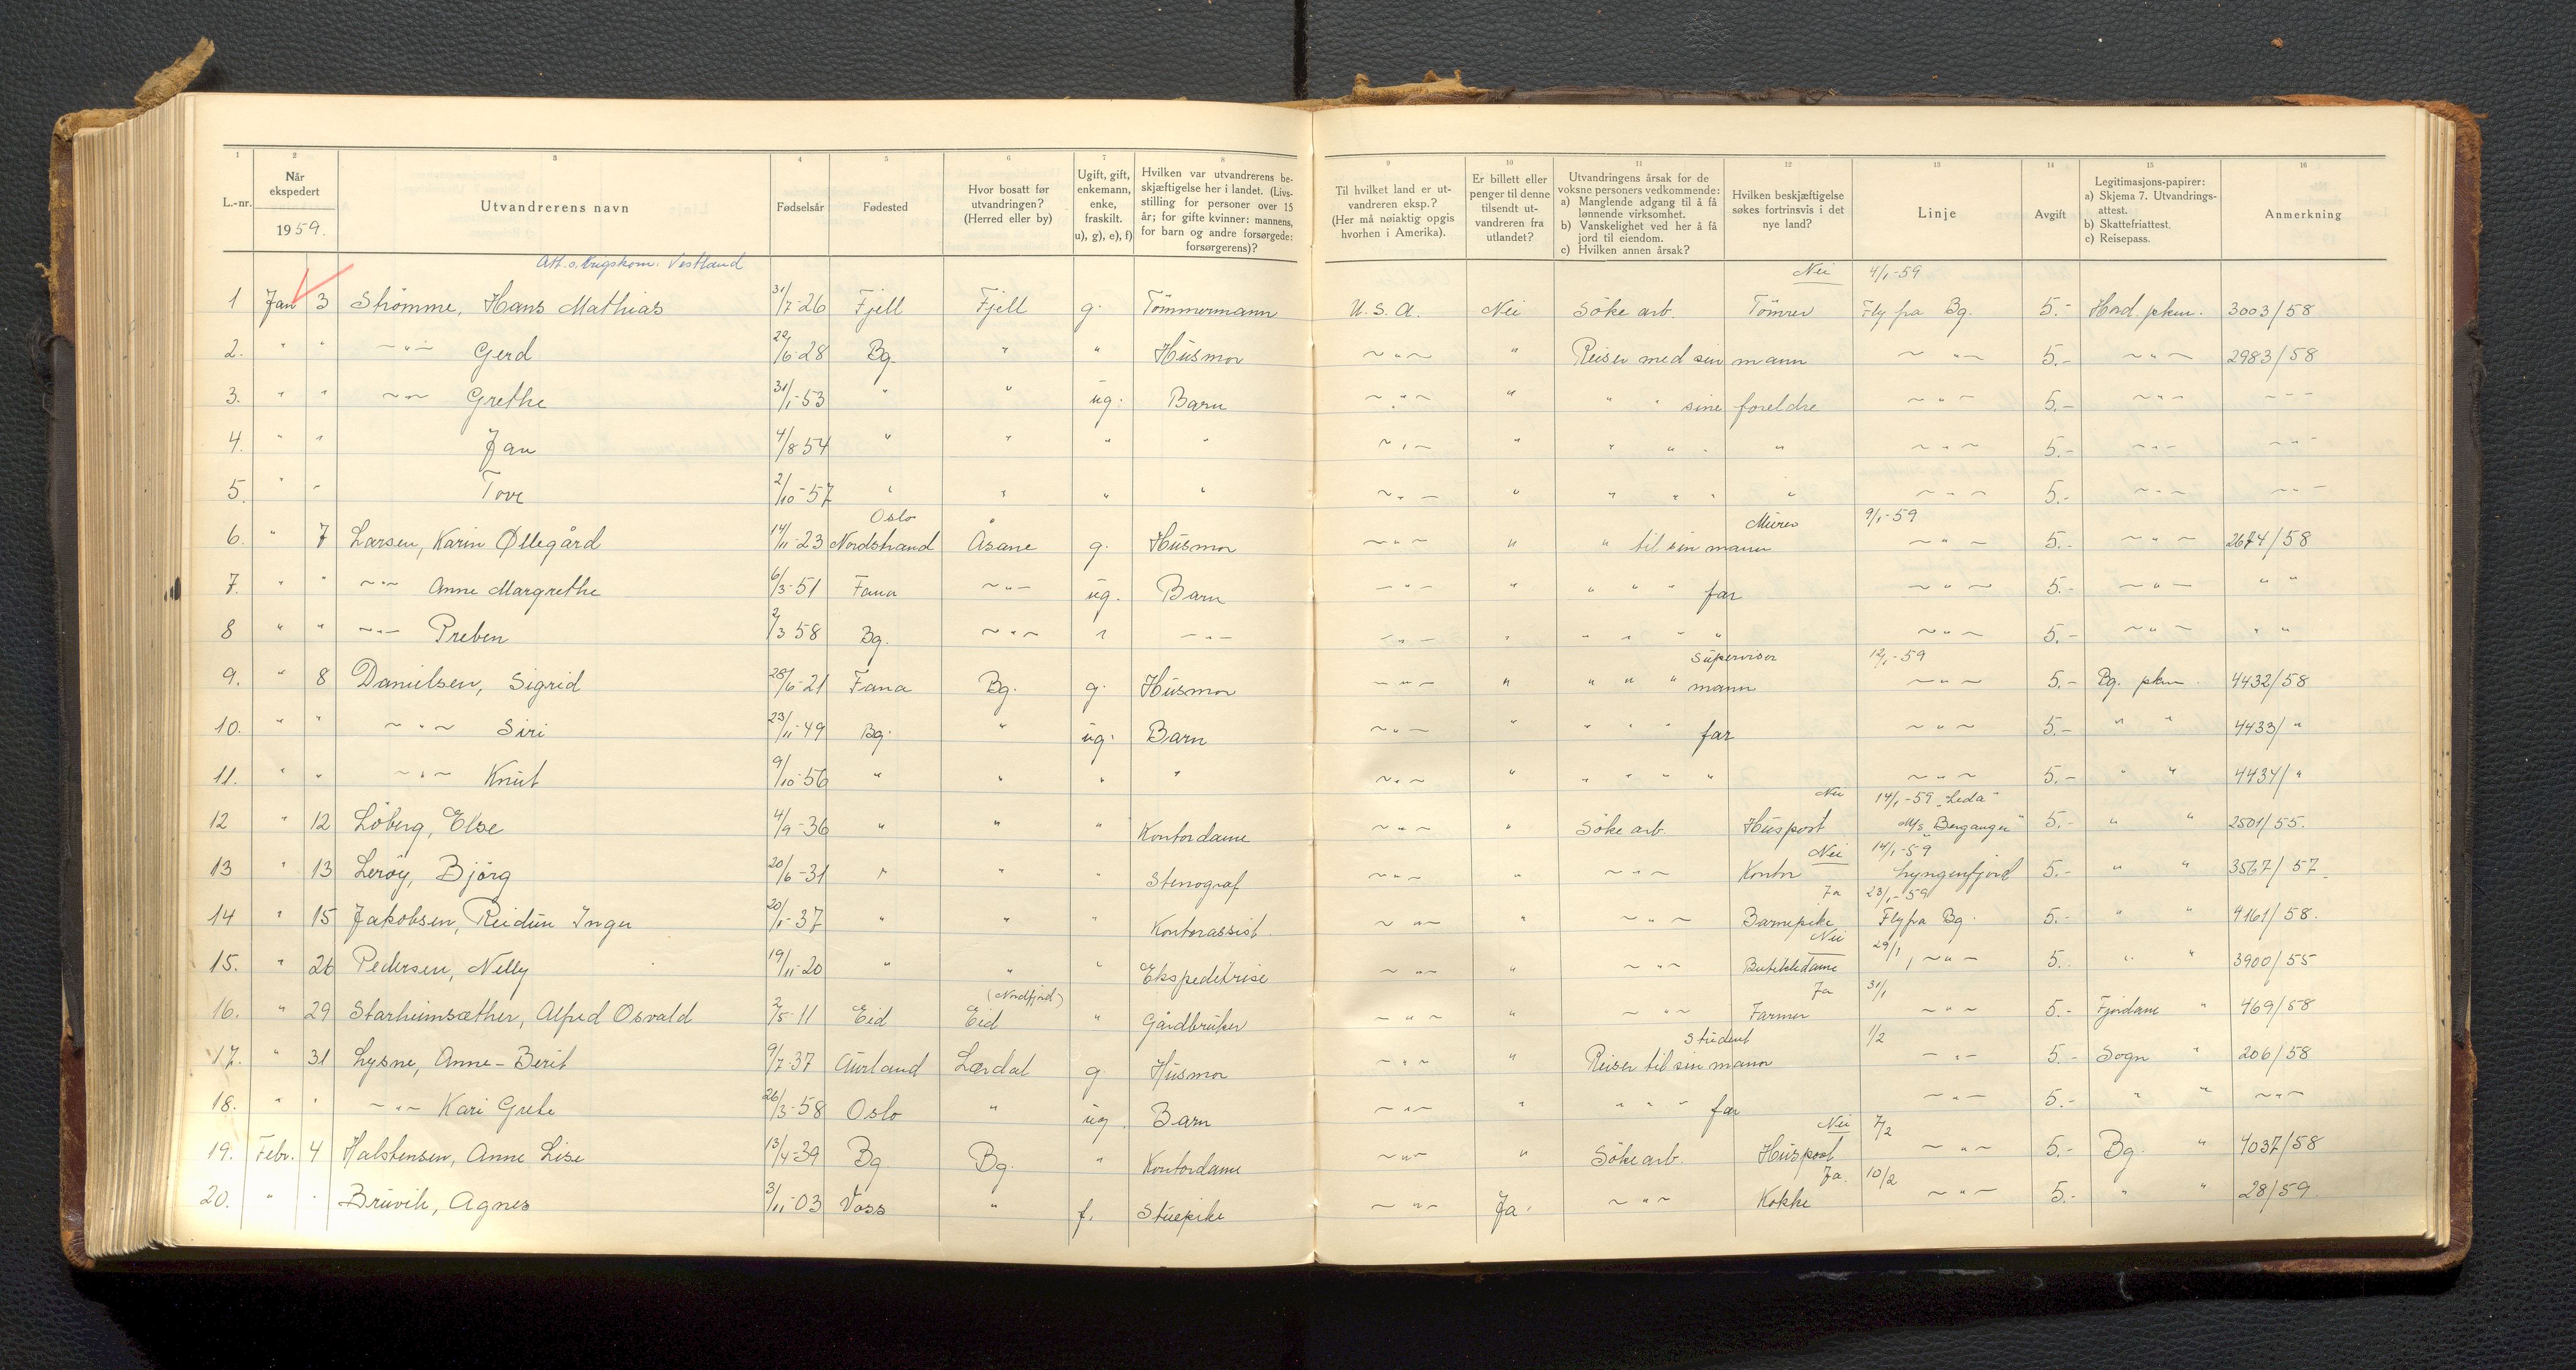 1 2 3 4 5 6 7 8 9 10 11 12 13 14 15 16
L.-nr. | Når ekspedert 1959. | Utvandrerens navn | Fødselsår | Fødested | Hvor bosatt før utvandringen? (Herred eller by) | Ugift, gift, enkemann, enke, fraskilt. u), g), e), f) | Hvilken var utvandrerens beskjæftigelse her i landet. (Livsstilling for personer over 15 år; for gifte kvinner: mannens, for barn og andre forsørgede: forsørgerens)? | Til hvilket land er utvandreren eksp.? (Her må nøiaktig opgis hvorhen i Amerika). | Er billett eller penger til denne tilsendt utvandreren fra utlandet? | Utvandringens årsak for de voksne personers vedkommende: a) Manglende adgang til å få lønnende virksomhet. b) Vanskelighet ved her å få jord til eiendom. c) Hvilken annen årsak? | Hvilken beskjæftigelse søkes fortrinsvis i det nye land? | Linje | Avgift | Legitimasjons-papirer: a) Skjema 7. Utvandrings-attest. b) Skattefriattest. c) Reisepass. | Anmerkning
Att. s. Krigskom. Vestland Nei 4/1-59
1 Jan 3 Strömme, Hans Mathias 31/7-26 Fjell Fjell g. Tömmermann U.S.A. Nei Söke arb. Tömrer Fly fra Bg. 5.- Hord. pkm. 3003/58
2. " " ~"~ Gerd 22/6-28 Bg. " " Husmor ~"~ " Reiser med sin mann ~"~ 5.- ~"~ 2983/58
3. " " ~"~ Grethe 31/1-53 " " ug. Barn ~"~ " " " sine foreldre ~"~ 5.- ~"~ ~"~
4. " " Jan 4/8 54 " " " " ~"~ " " " " " ~"~ 5.- ~"~ ~"~
5. " " Tove 2/10-57 " " " " ~"~ " " " " " ~"~ 5.- ~"~ ~"~
Oslo Murer 9/1-59
6. " 7 Larsen, Karin Øllegård 14/11-23 Nordstrand Åsane g. Husmor ~"~ " " til sin mann ~"~ 5.- ~"~ 2674/58
7. " " ~"~ Anne Margrethe 6/3-51 Fana ~"~ ug. Barn ~"~ " " " " far ~"~ 5.- ~"~ " "
8 " " ~"~ Preben 2/3 58 Bg. ~"~ " ~"~ ~"~ " " " " " ~"~ 5.- ~"~ " "
Supervisor 12/1-59
9. " 8 Danielsen, Sigrid 28/6-21 Fana Bg. g. Husmor ~"~ " " " " mann ~"~ 5.- Bg. pkm. 4432/58
10. " " ~"~ Siri 23/11-49 Bg. " ug. Barn ~"~ " " " " far ~"~ 5.- " " 4433/"
11. " " ~"~ Knut 9/10-56 " " " " ~"~ " " " " " ~"~ 5.- " " 4434/"
Nei 14/1-59 "Leda"
12 " 12 Löberg, Else 4/9-36 " " " Kontordame ~"~ " Söke arb. Huspost M/s "Berganger" 5.- " " 2501/55.
Nei 14/1-59
13 " 13 Leröy, Björg 20/6-31 " " " Stenograf ~"~ " ~"~ Kontor Lyngenfjord 5.- " " 3567/57.
Ja 23/1-59
14 " 15 Jakobsen, Reidun Inger 20/1-37 " " " Kontorassist. ~"~ " ~"~ Barnepike Fly fra Bg. 5.- " " 4161/58.
Nei 29/1
15. " 26 Pedersen, Nelly 19/11-20 " " " Ekspeditrise ~"~ " ~"~ Butikkdame ~"~ 5. " " 3900/55
(Nordfjord) Ja 31/1
16. " 29 Starheimsæther, Alfred Osvald 2/5-11 Eid Eid " Gårdbruker ~"~ " ~"~ Farmer ~"~ 5.- Fjordane " 469/58
Student 1/2
17. " 31 Lysne, Anne-Berit 9/7-37 Aurland Lærdal g Husmor ~"~ " Reiser til sin mann ~"~ 5.- Sogn " 206/58
18. " " ~"~ Kari Grete 26/3-58 Oslo " ug. Barn ~"~ " " " " far ~"~ 5.- " " ~"~
Nei 7/2
19. Febr. 4 Halstensen, Anne Lise 13/4-39 Bg. Bg. " Kontordame ~"~ " Söke arb. Huspost ~"~ 5.- Bg. " 4037/58
Ja. 10/2
20. " " Bruvik, Agnes 3/11-03 Voss " f. Stuepike ~"~ Ja. ~"~ Kokke ~"~ 5.- " " 28/59